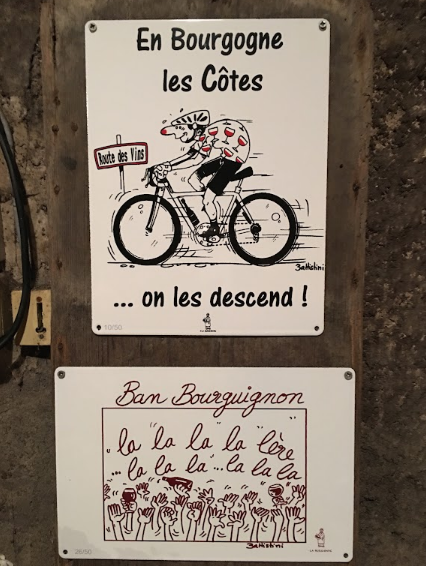 En Bourgogne
les Côtes
Route des Vins
Battistini
... on les descend !
10/50
Ban Bourguignon
la la la la lère
... la la la ... la la la
Battistini
26/50